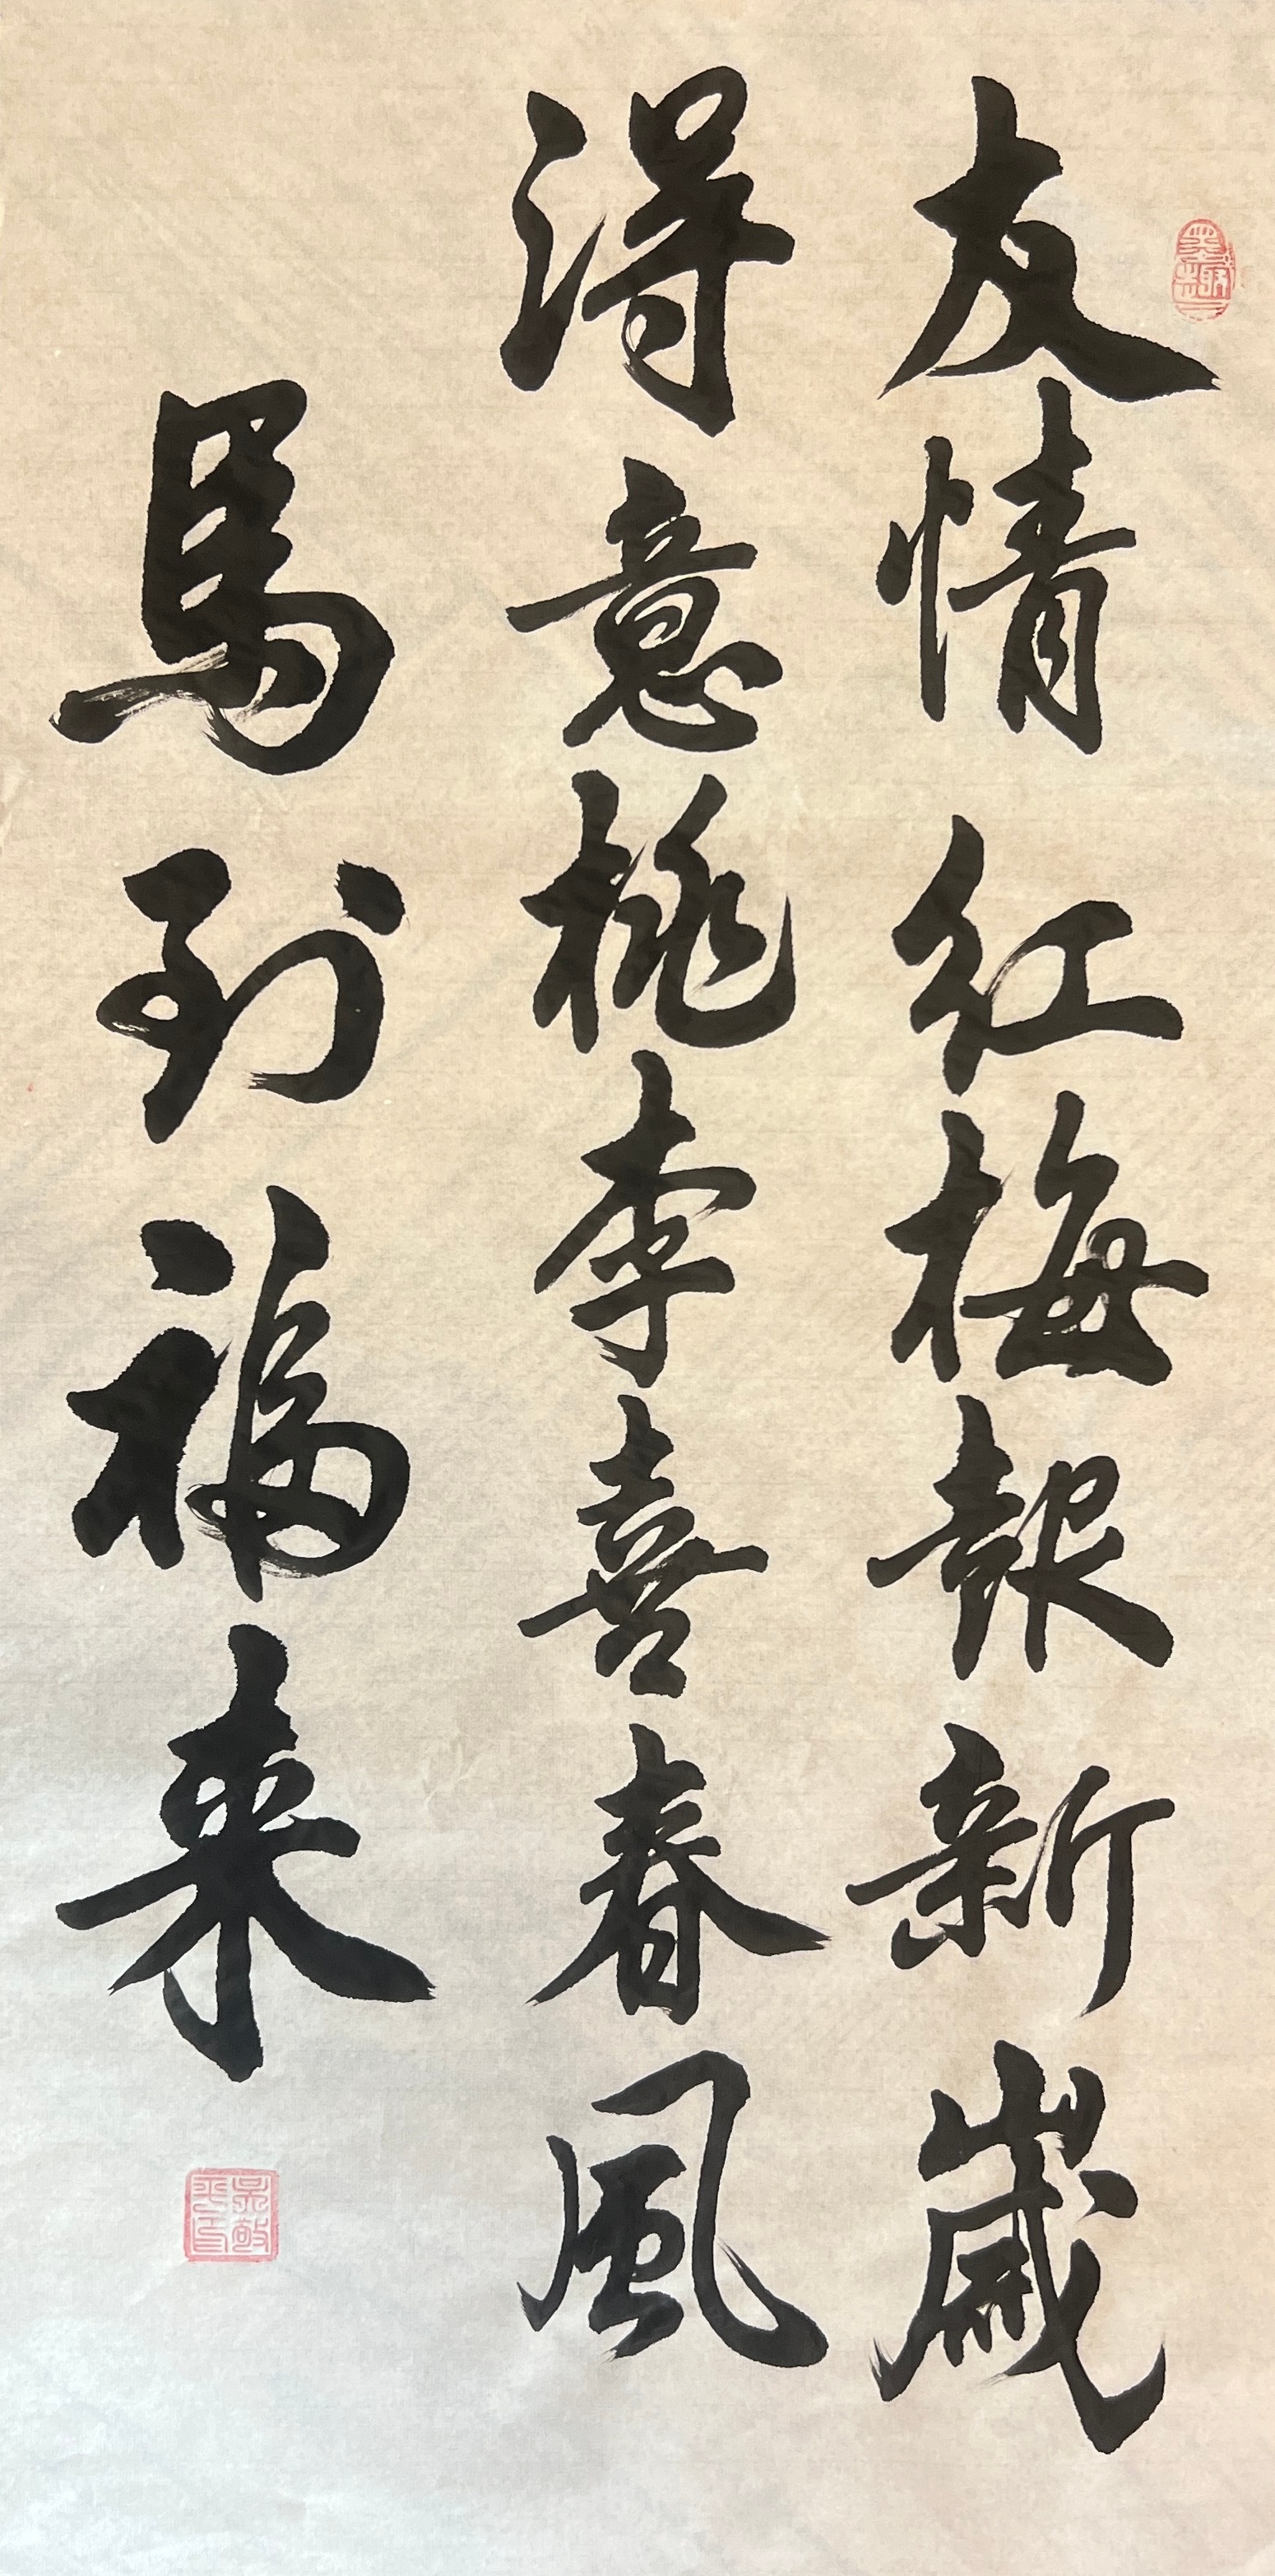 友情红梅報新歲
得意桃李喜春風
馬到福来